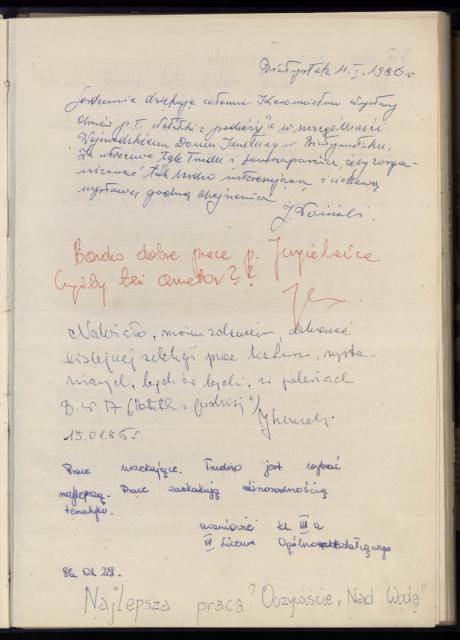 Białystok 11.I.1986 r
Serdecznie dziękuję całemu Kierownictwu Wystawy
p.t. "Notatki z podróży" a w szczególności
Wojewódzkiemu Domu Kultury w Białymstoku,
za włożenie tyle trudu i żeby zorga-
nizować tak bardzo interesującą i ciekawą
wystawę godną obejrzenia
Bardzo dobre prace p. Jagielończa
Czyżby też amator??
Należało, moim zdaniem, dokonać
ściślejszej selekcji prac
bądź co bądź, w salonach
B.W.A (Notatki z podróży)
15.01.86
Prace urzekające. Trudno jest wybrać
najlepszą. Prace zaskakują różnorodnością
tematyki.
uczniowie kl III a
IV Liceum Ogólnokształcącego
86.01.28.
Najlepsza praca? Oczywiście "Nad Wodą"